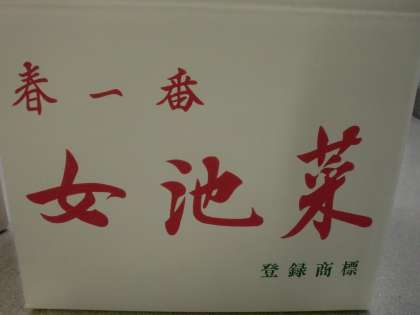 春一番
女池菜
登録商標